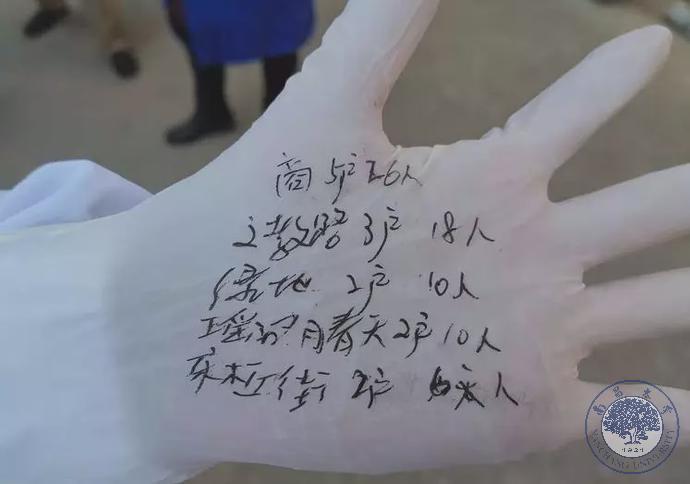 商 5户 26人
文教路 3户 18人
绿地 2户 10人
瑶湖月春天 2户 10人
京 红街 2户 人
南昌大学
NANCHANG UNIVERSITY
1921